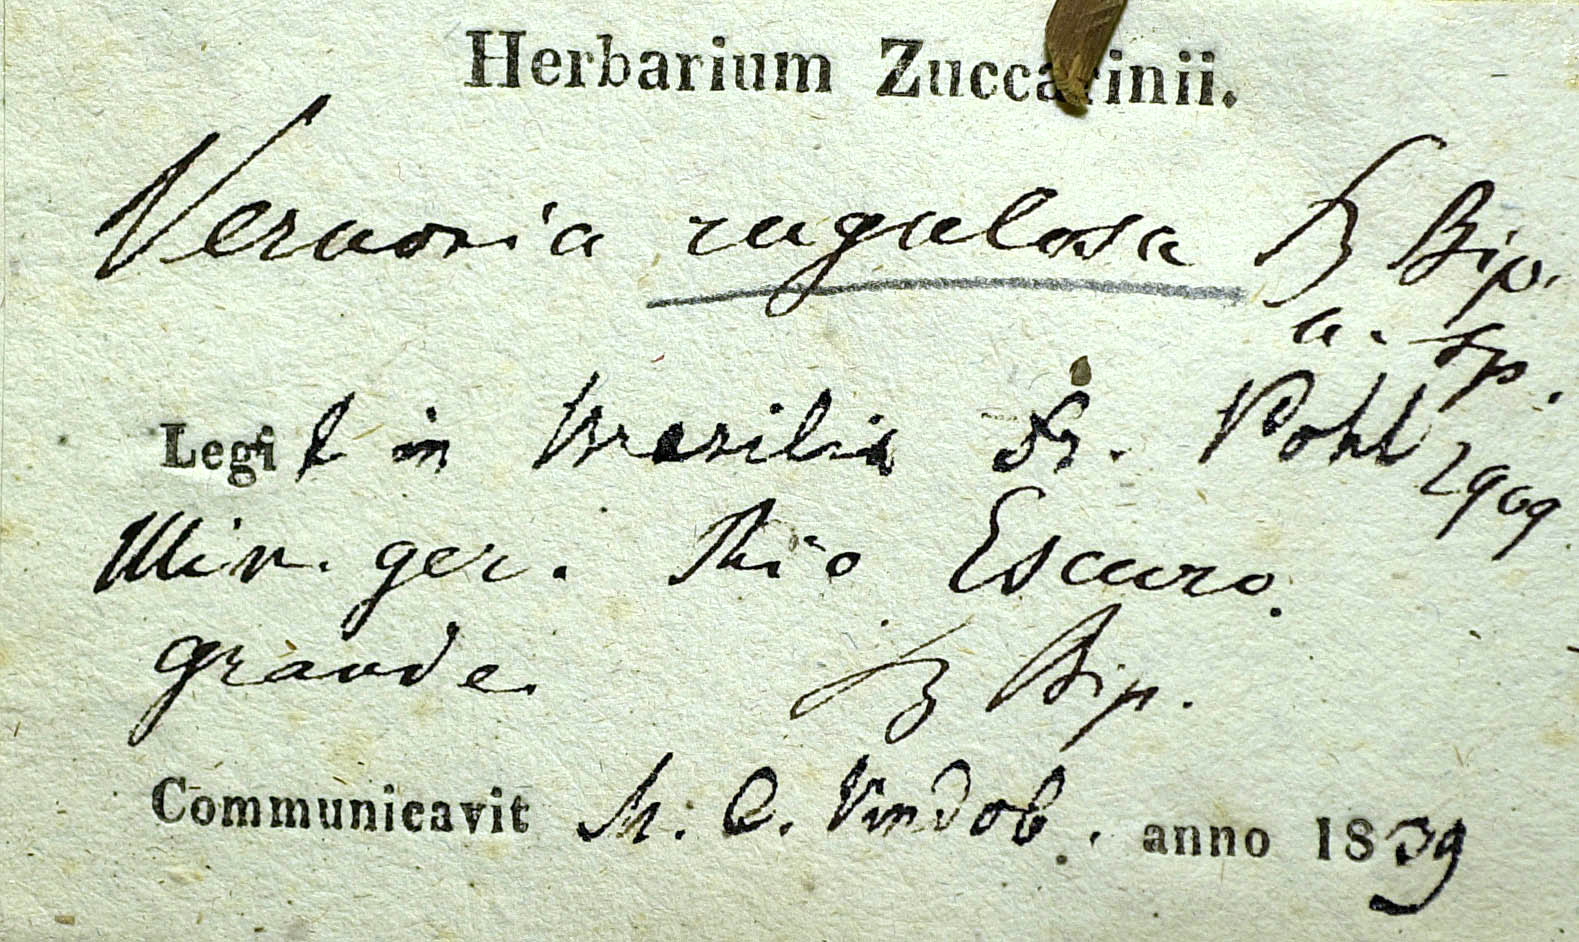 Herbarium Zuccarinii.
Vernonia rugulosa Sz Bip.
n. sp.
Legit in Brasilia Dr. Pohl
2909
Min. ger. Rio Escuro
grande. Sz Bip.
Communicavit M. C. Vindob. anno 1839